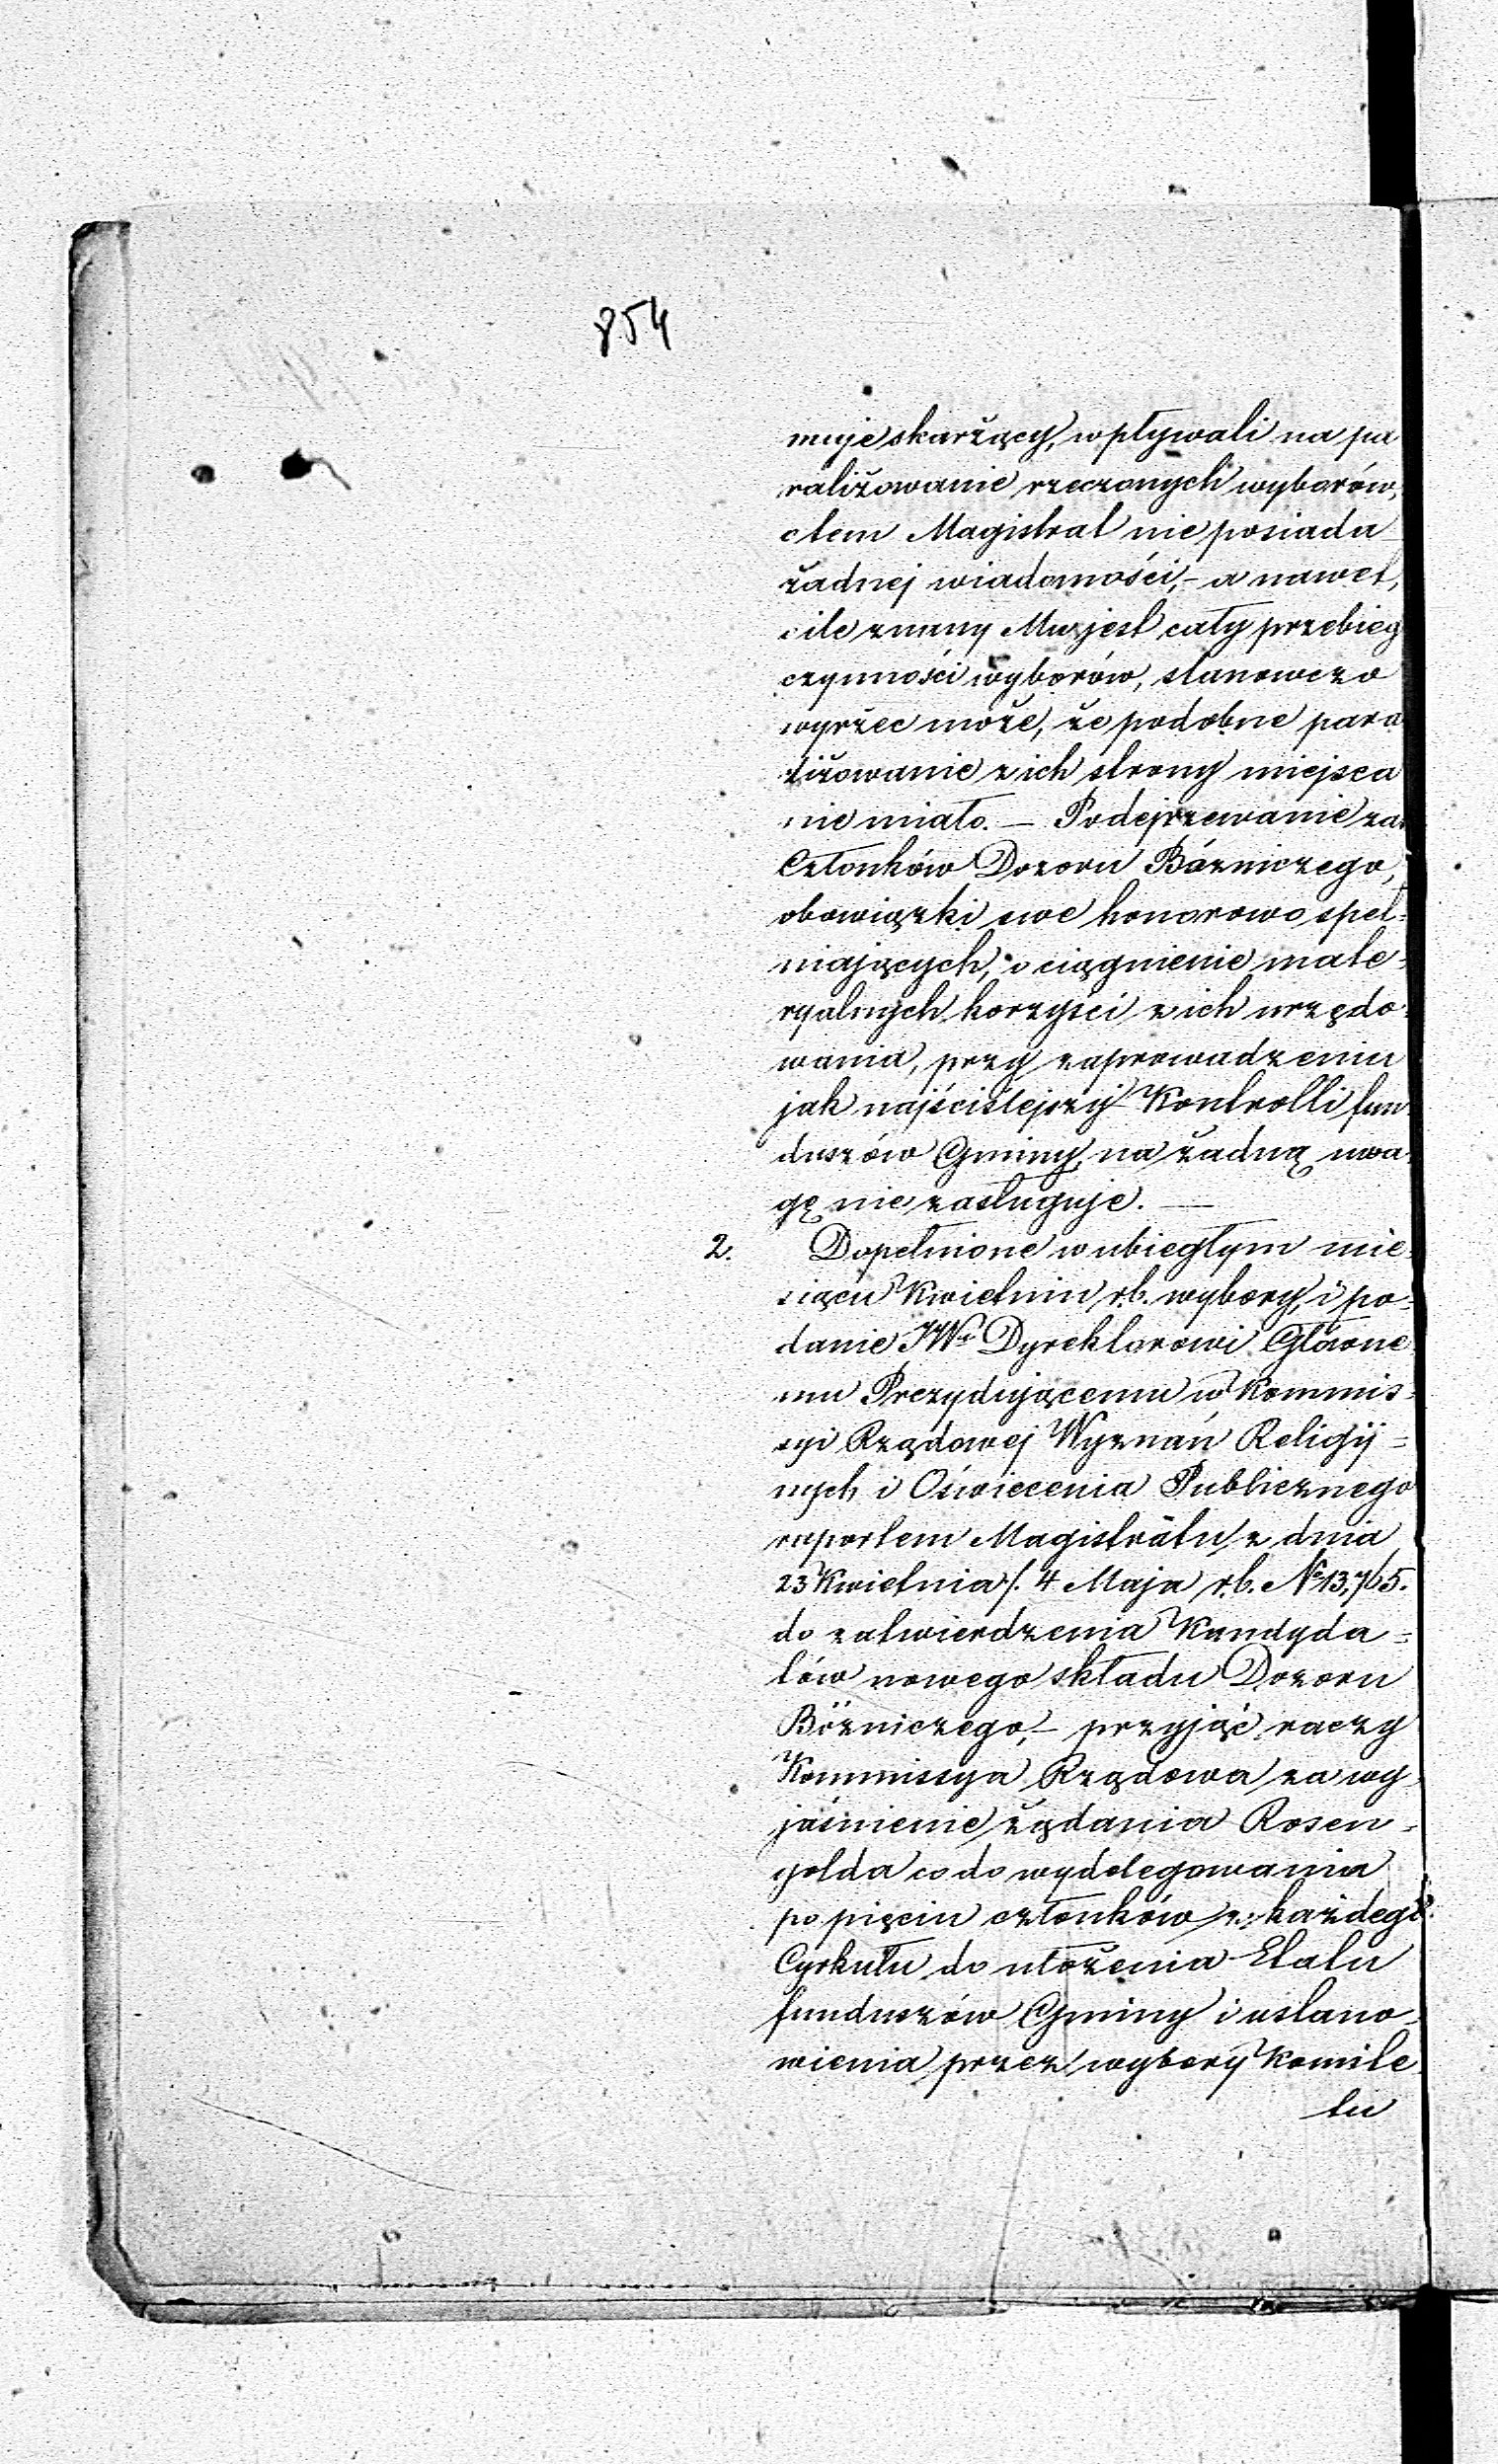 854
muje skarżący, wpływali na pa
raliżowanie rzeczonych wyborów,
o tem Magistrat nie posiada
żadnej wiadomości, – a nawet,
o ile znany Mu jest cały przebieg
czynności wyborów, stanowczo
wyrzec może, że podobne para
liżowanie z ich strony miejsca
nie miało. — Podejrzewanie zaś
Członków Dozoru Bózniczego,
obowiązki swe honorowo speł=
niających, o ciągnienie mate=
ryalnych korzyści z ich urzędo=
wania, przy zaprowadzeniu
jak najściślejszej Kontrolli fun
duszów Gminy, na żadną uwa
gę nie zasługuje. —
2. Dopełnione w ubiegłym mie
siącu Kwietniu r.b. wybory, i po=
danie JWu Dyrektorowi Główne
mu Prezydującemu w Kommis=
syi Rządowej Wyznań Religij=
nych i Oświecenia Publicznego
raportem Magistratu z dnia
23 Kwietnia /. 4 Maja r.b. No 13,765.
do zatwierdzenia Kandyda=
tów nowego składu Dozoru
Bózniczego, – przyjąć raczy
Kommissya Rządowa za wy
jaśnienie żądania Rosen=
golda co do wydelegowania
po pięciu członków z każdego
Cyrkułu do ułożenia Etatu
funduszów Gminy i ustano=
wienia przez wybory Komite
tu